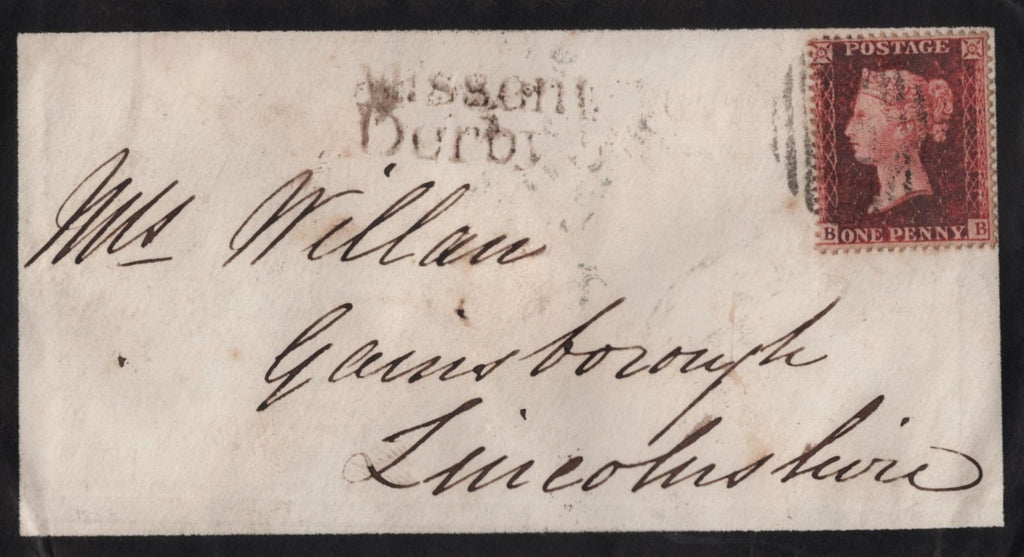 Missent
Derby
POSTAGE
B ONE PENNY. B
Mrs Willan
Gainsborough
Lincolnshire